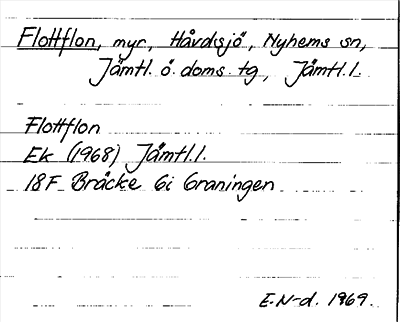 Flottflon, myr, Håvdsjö, Nyhems sn,
Jämtl. ö. doms. tg, Jämtl.l.
Flottflon
Ek (1968) Jämtl.l.
18F Bräcke 6i Graningen
E.N-d. 1969.